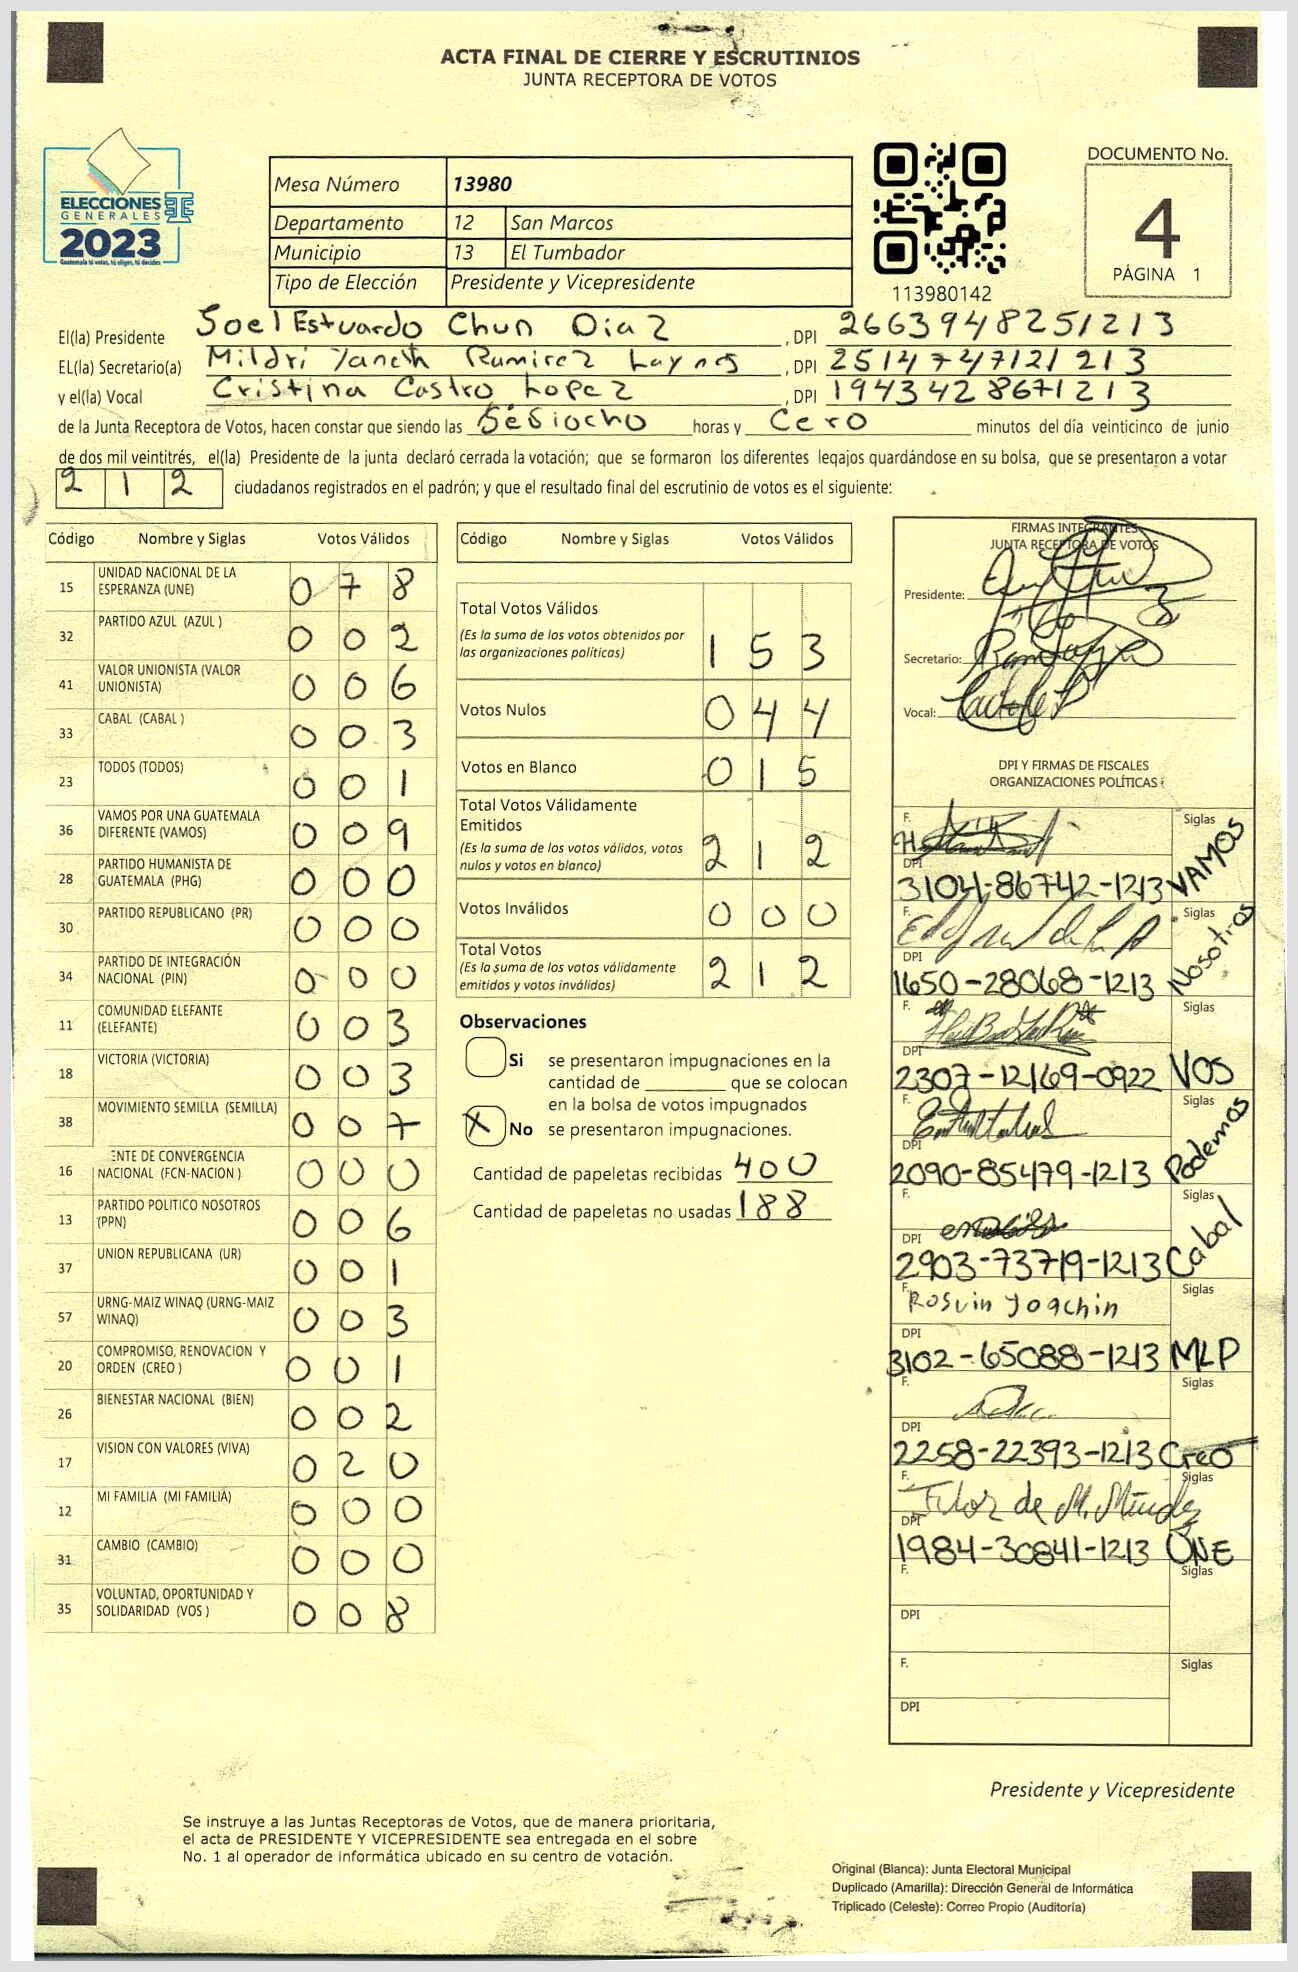 ACTA FINAL DE CIERRE Y ESCRUTINIOS
JUNTA RECEPTORA DE VOTOS
ELECCIONES
GENERALES
2023
Guatemala tú votas, tú eliges, tú decides
Mesa Número 13980
Departamento 12 San Marcos
Municipio 13 El Tumbador
Tipo de Elección Presidente y Vicepresidente
113980142
DOCUMENTO No.
4
PÁGINA 1
El(la) Presidente Joel Estuardo Chun Diaz, DPI 2663948251213
EL(la) Secretario(a) Mildri Yaneth Ramirez Laynes, DPI 2514747121213
y el(la) Vocal Cristina Castro Lopez, DPI 1943428671213
de la Junta Receptora de Votos, hacen constar que siendo las horas y Cero minutos del día veinticinco de junio
de dos mil veintitrés, el(la) Presidente de la junta declaró cerrada la votación; que se formaron los diferentes legajos guardándose en su bolsa, que se presentaron a votar
212 ciudadanos registrados en el padrón; y que el resultado final del escrutinio de votos es el siguiente:
Código Nombre y Siglas Votos Válidos
15 UNIDAD NACIONAL DE LA ESPERANZA (UNE) 078
32 PARTIDO AZUL (AZUL ) 002
41 VALOR UNIONISTA (VALOR UNIONISTA) 006
33 CABAL (CABAL ) 003
23 TODOS (TODOS) 001
36 VAMOS POR UNA GUATEMALA DIFERENTE (VAMOS) 009
28 PARTIDO HUMANISTA DE GUATEMALA (PHG) 000
30 PARTIDO REPUBLICANO (PR) 000
34 PARTIDO DE INTEGRACIÓN NACIONAL (PIN) 000
11 COMUNIDAD ELEFANTE (ELEFANTE) 003
18 VICTORIA (VICTORIA) 003
38 MOVIMIENTO SEMILLA (SEMILLA) 007
16 ENTE DE CONVERGENCIA NACIONAL (FCN-NACION ) 000
13 PARTIDO POLITICO NOSOTROS (PPN) 006
37 UNION REPUBLICANA (UR) 001
57 URNG-MAIZ WINAQ (URNG-MAIZ WINAQ) 003
20 COMPROMISO, RENOVACION Y ORDEN (CREO ) 001
26 BIENESTAR NACIONAL (BIEN) 002
17 VISION CON VALORES (VIVA) 020
12 MI FAMILIA (MI FAMILIA) 000
31 CAMBIO (CAMBIO) 000
35 VOLUNTAD, OPORTUNIDAD Y SOLIDARIDAD (VOS ) 008
Código Nombre y Siglas Votos Válidos
Total Votos Válidos
(Es la suma de los votos obtenidos por las organizaciones políticas) 153
Votos Nulos 044
Votos en Blanco 015
Total Votos Válidamente Emitidos
(Es la suma de los votos válidos, votos nulos y votos en blanco) 212
Votos Inválidos 000
Total Votos
(Es la suma de los votos válidamente emitidos y votos inválidos) 212
Observaciones
Si se presentaron impugnaciones en la
cantidad de ________ que se colocan
en la bolsa de votos impugnados
X No se presentaron impugnaciones.
Cantidad de papeletas recibidas 400
Cantidad de papeletas no usadas 188
FIRMAS INTEGRANTES
JUNTA RECEPTORA DE VOTOS
Presidente:
Secretario:
Vocal:
DPI Y FIRMAS DE FISCALES
ORGANIZACIONES POLÍTICAS
F. Siglas
DPI 3104-86742-1213 VAMOS
F. Siglas
DPI 1650-28068-1213 Nosotros
F. Siglas
DPI 2307-12169-0922 VOS
F. Siglas
DPI 2090-85479-1213 Podemos
F. Siglas
DPI 2903-73719-1213 Cabal
F. Rosvin Joachin Siglas
DPI 3102-65088-1213 MLP
F. Siglas
DPI 2258-22393-1213 Creo
F. Siglas
DPI 1984-30841-1213 UNE
F. Siglas
DPI
F. Siglas
DPI
Presidente y Vicepresidente
Se instruye a las Juntas Receptoras de Votos, que de manera prioritaria,
el acta de PRESIDENTE Y VICEPRESIDENTE sea entregada en el sobre
No. 1 al operador de informática ubicado en su centro de votación.
Original (Blanca): Junta Electoral Municipal
Duplicado (Amarilla): Dirección General de Informática
Triplicado (Celeste): Correo Propio (Auditoría)